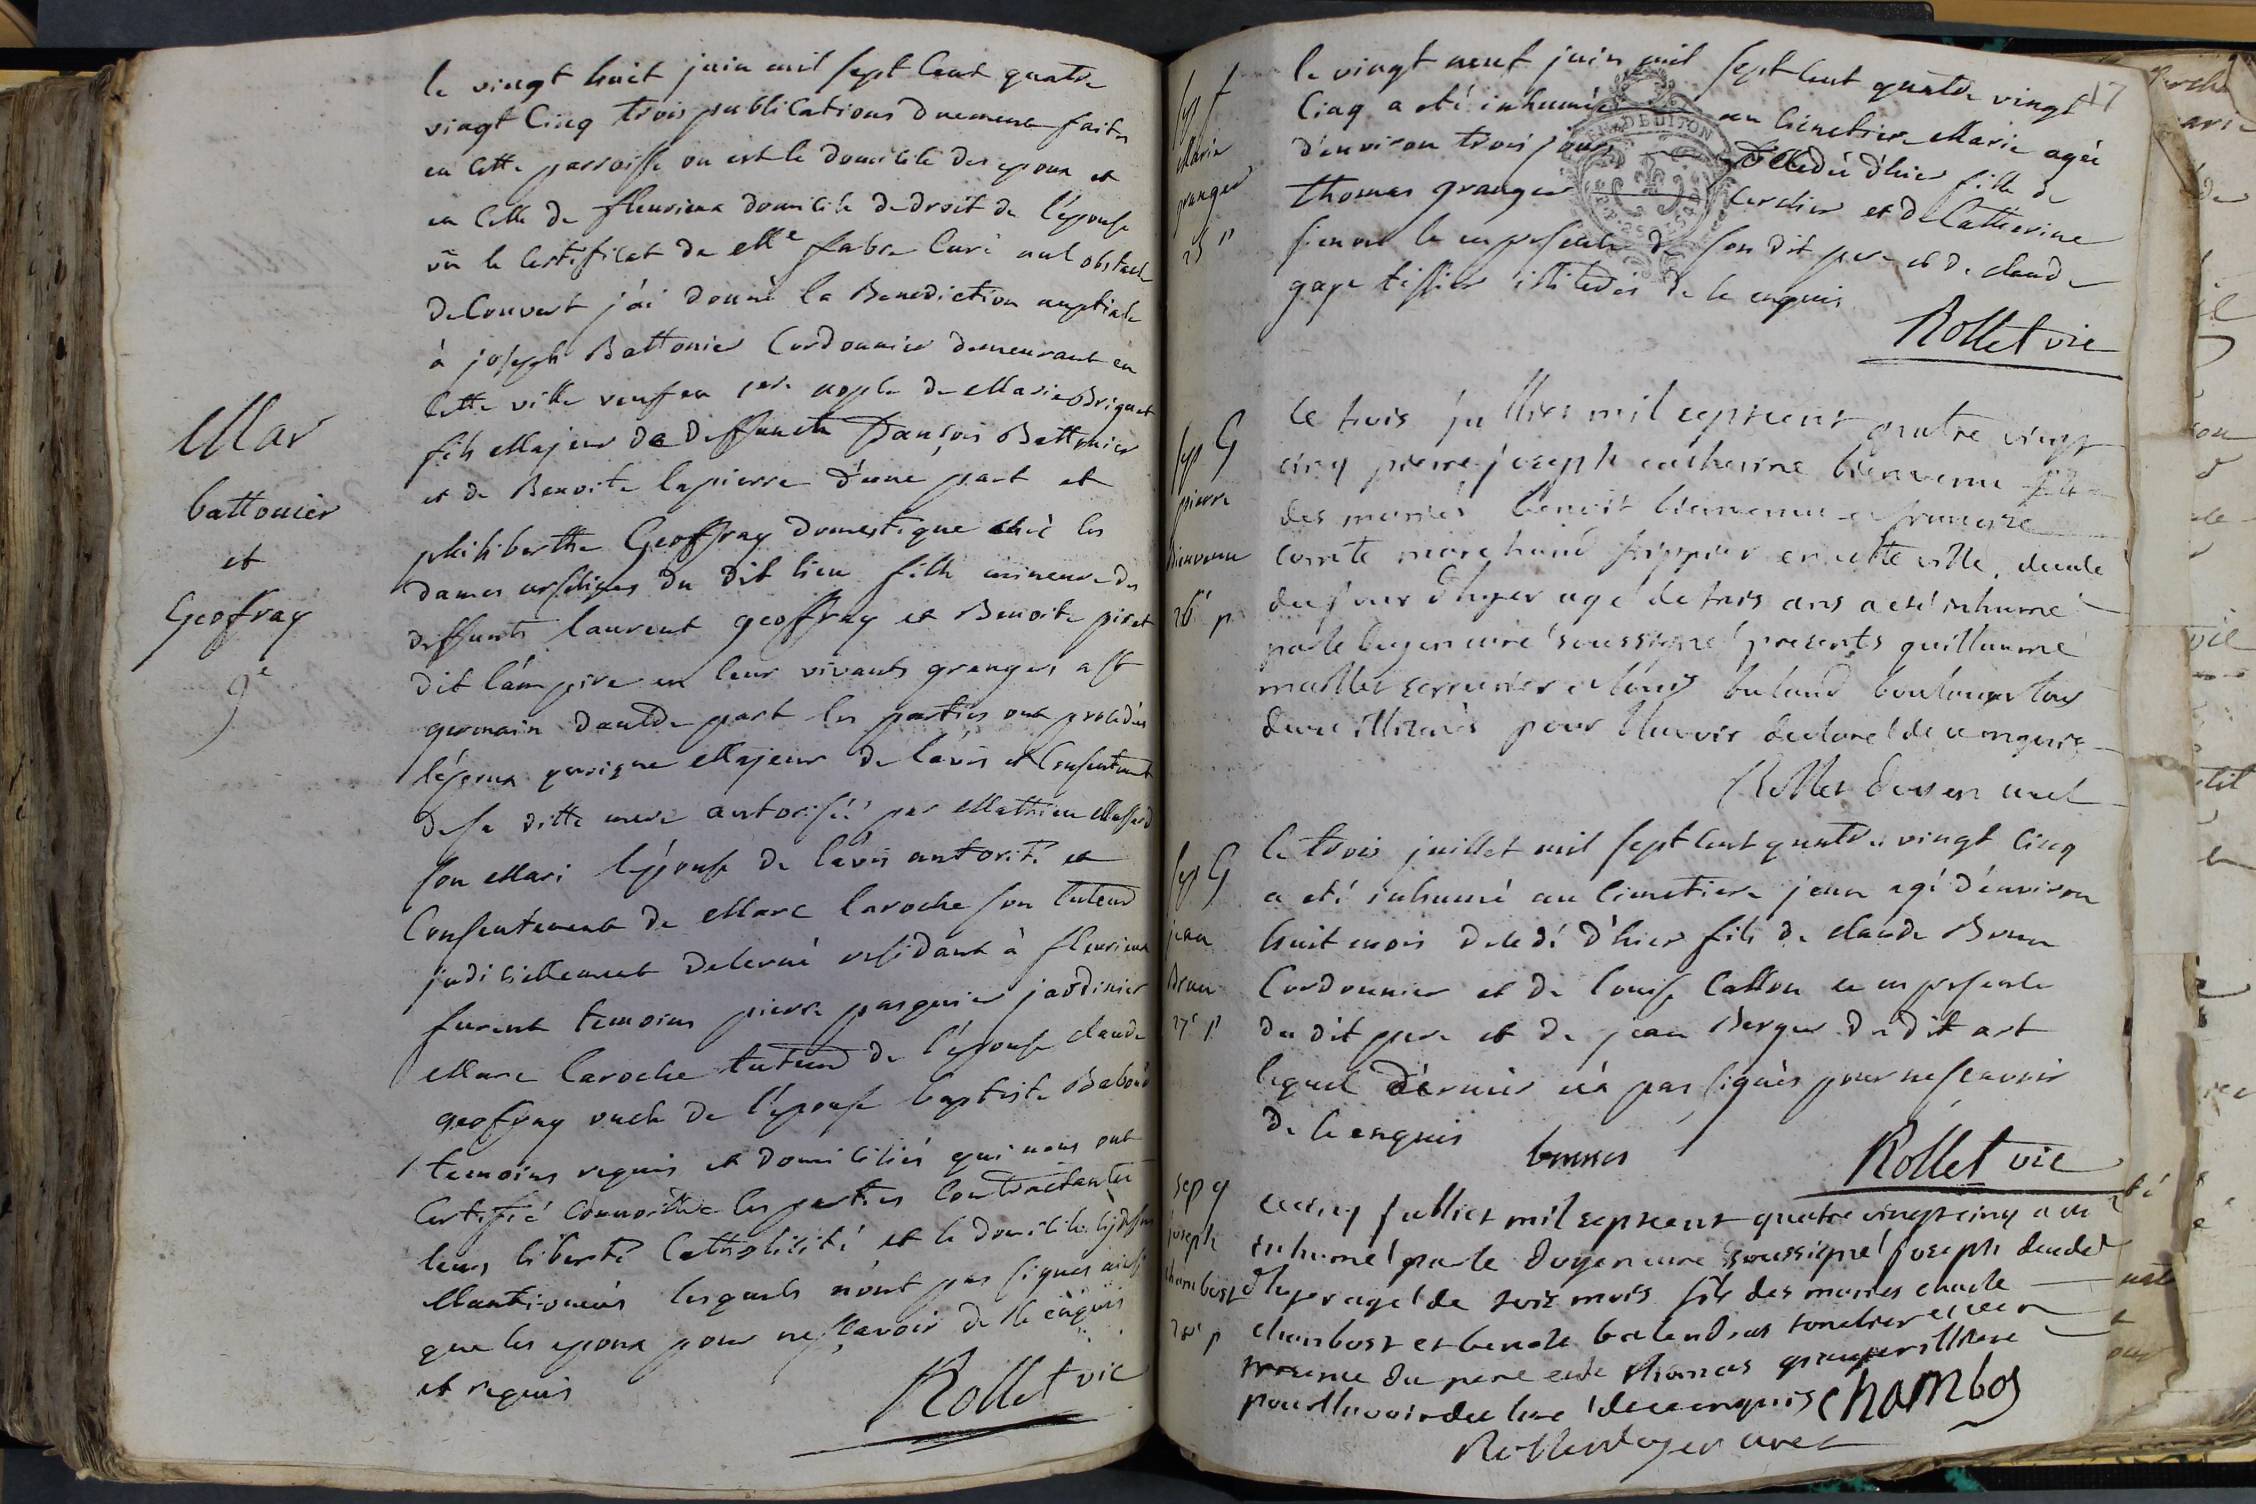 le vingt huit juin mil sept cent quatre
vingt cinq trois publications duement faites
en cette parroisse ou est le domicile des epoux et
en celle de fleurieux domicile de droit de l'épouse
vû le certificat de Mre fabre curé nul obstacle
decouvert j'ai donné la Benediction nuptiale
à joseph Battonier Cordonnier demeurant en
cette ville veuf en 1ere nopce de Marie Briquet
fils Majeur de deffunct françois Battonier
et de Benoite lapierre d'une part et
philiberthe Geoffray domestique chés les
dames urselines du dit lieu fille mineure des
deffunts laurent geoffray et Benoite piret
dit l'ampire en leur vivants grangers a st
germain dautre part les parties ont procedés
l'époux quoique Majeur de l'avis et Consentement
de sa ditte mere autorisée par Mathieu
son Mari l'épouse de l'avis autorité et
Consentement de Marc laroche son tuteur
judiciellement decerné residant à fleurieux
furent temoins pierre pasquier jardinier
Marc laroche tuteur de l'épouse claude
geoffray oncle de l'épouse baptiste
temoins requis et domiciliés qui nous ont
certifié connoitre les parties contractantes
leurs liberté catholicité et le domicile
Mantionnés lesquels n'ont pas signés ainsi
que les epoux pour ne sçavoir de ce enquis
et requis
Rollet vic
Mar
battonier
et
Geofray
9e
17
sep f
Marie
granger
25 p
le vingt neuf juin mil sept cent quatre vingt
cinq a eté inhumée au cimetiere Marie agée
d'environ trois jours decedée d'hier fille de
thomas granger cerclier et de Catherine
ce en presence de son dit pere et de claude
gage tissier illiterés de ce enquis
Rollet vic
sep G
pierre
bienvenu
26e p
le trois juillet mil sept cent quatre vingt
cinq pierre joseph catherine bienvenu fils
des mariés benoit bienvenu et francoise
comte marchand frippier en cette ville, decede
du jour d'hyer age de trois ans a eté inhumé
par le doyen curé soussigné presents guillaume
mollet serrurier et louis buland boulanger tous
deux illiterés pour l'avoir declaré de ce enquis
Rollet doyen curé
sep G
jean
Brun
27e p
le trois juillet mil sept cent quatre vingt cinq
a eté inhumé au cimetiere jean agé d'environ
huit mois decedé d'hier fils de claude Brun
Cordonnier et de louise Callon ce en presence
du dit pere et de jean Berger du dit art
lequel dérnier n'a pas signés pour ne scavoir
de ce enquis
brunes
Rollet vic
sep g
joseph
chambost
28e p
le cinq juillet mil sept cent quatre vingt cinq a eté
inhumé par le doyen curé soussigné joseph decedé
d'hyer agé de trois mois fils des mariés claude
chambost et benoite balandras tonelier ce en
presence du pere et de thomas granger illitere
pour l'avoir declaré de ce enquis chambos
Rollet doyen curé